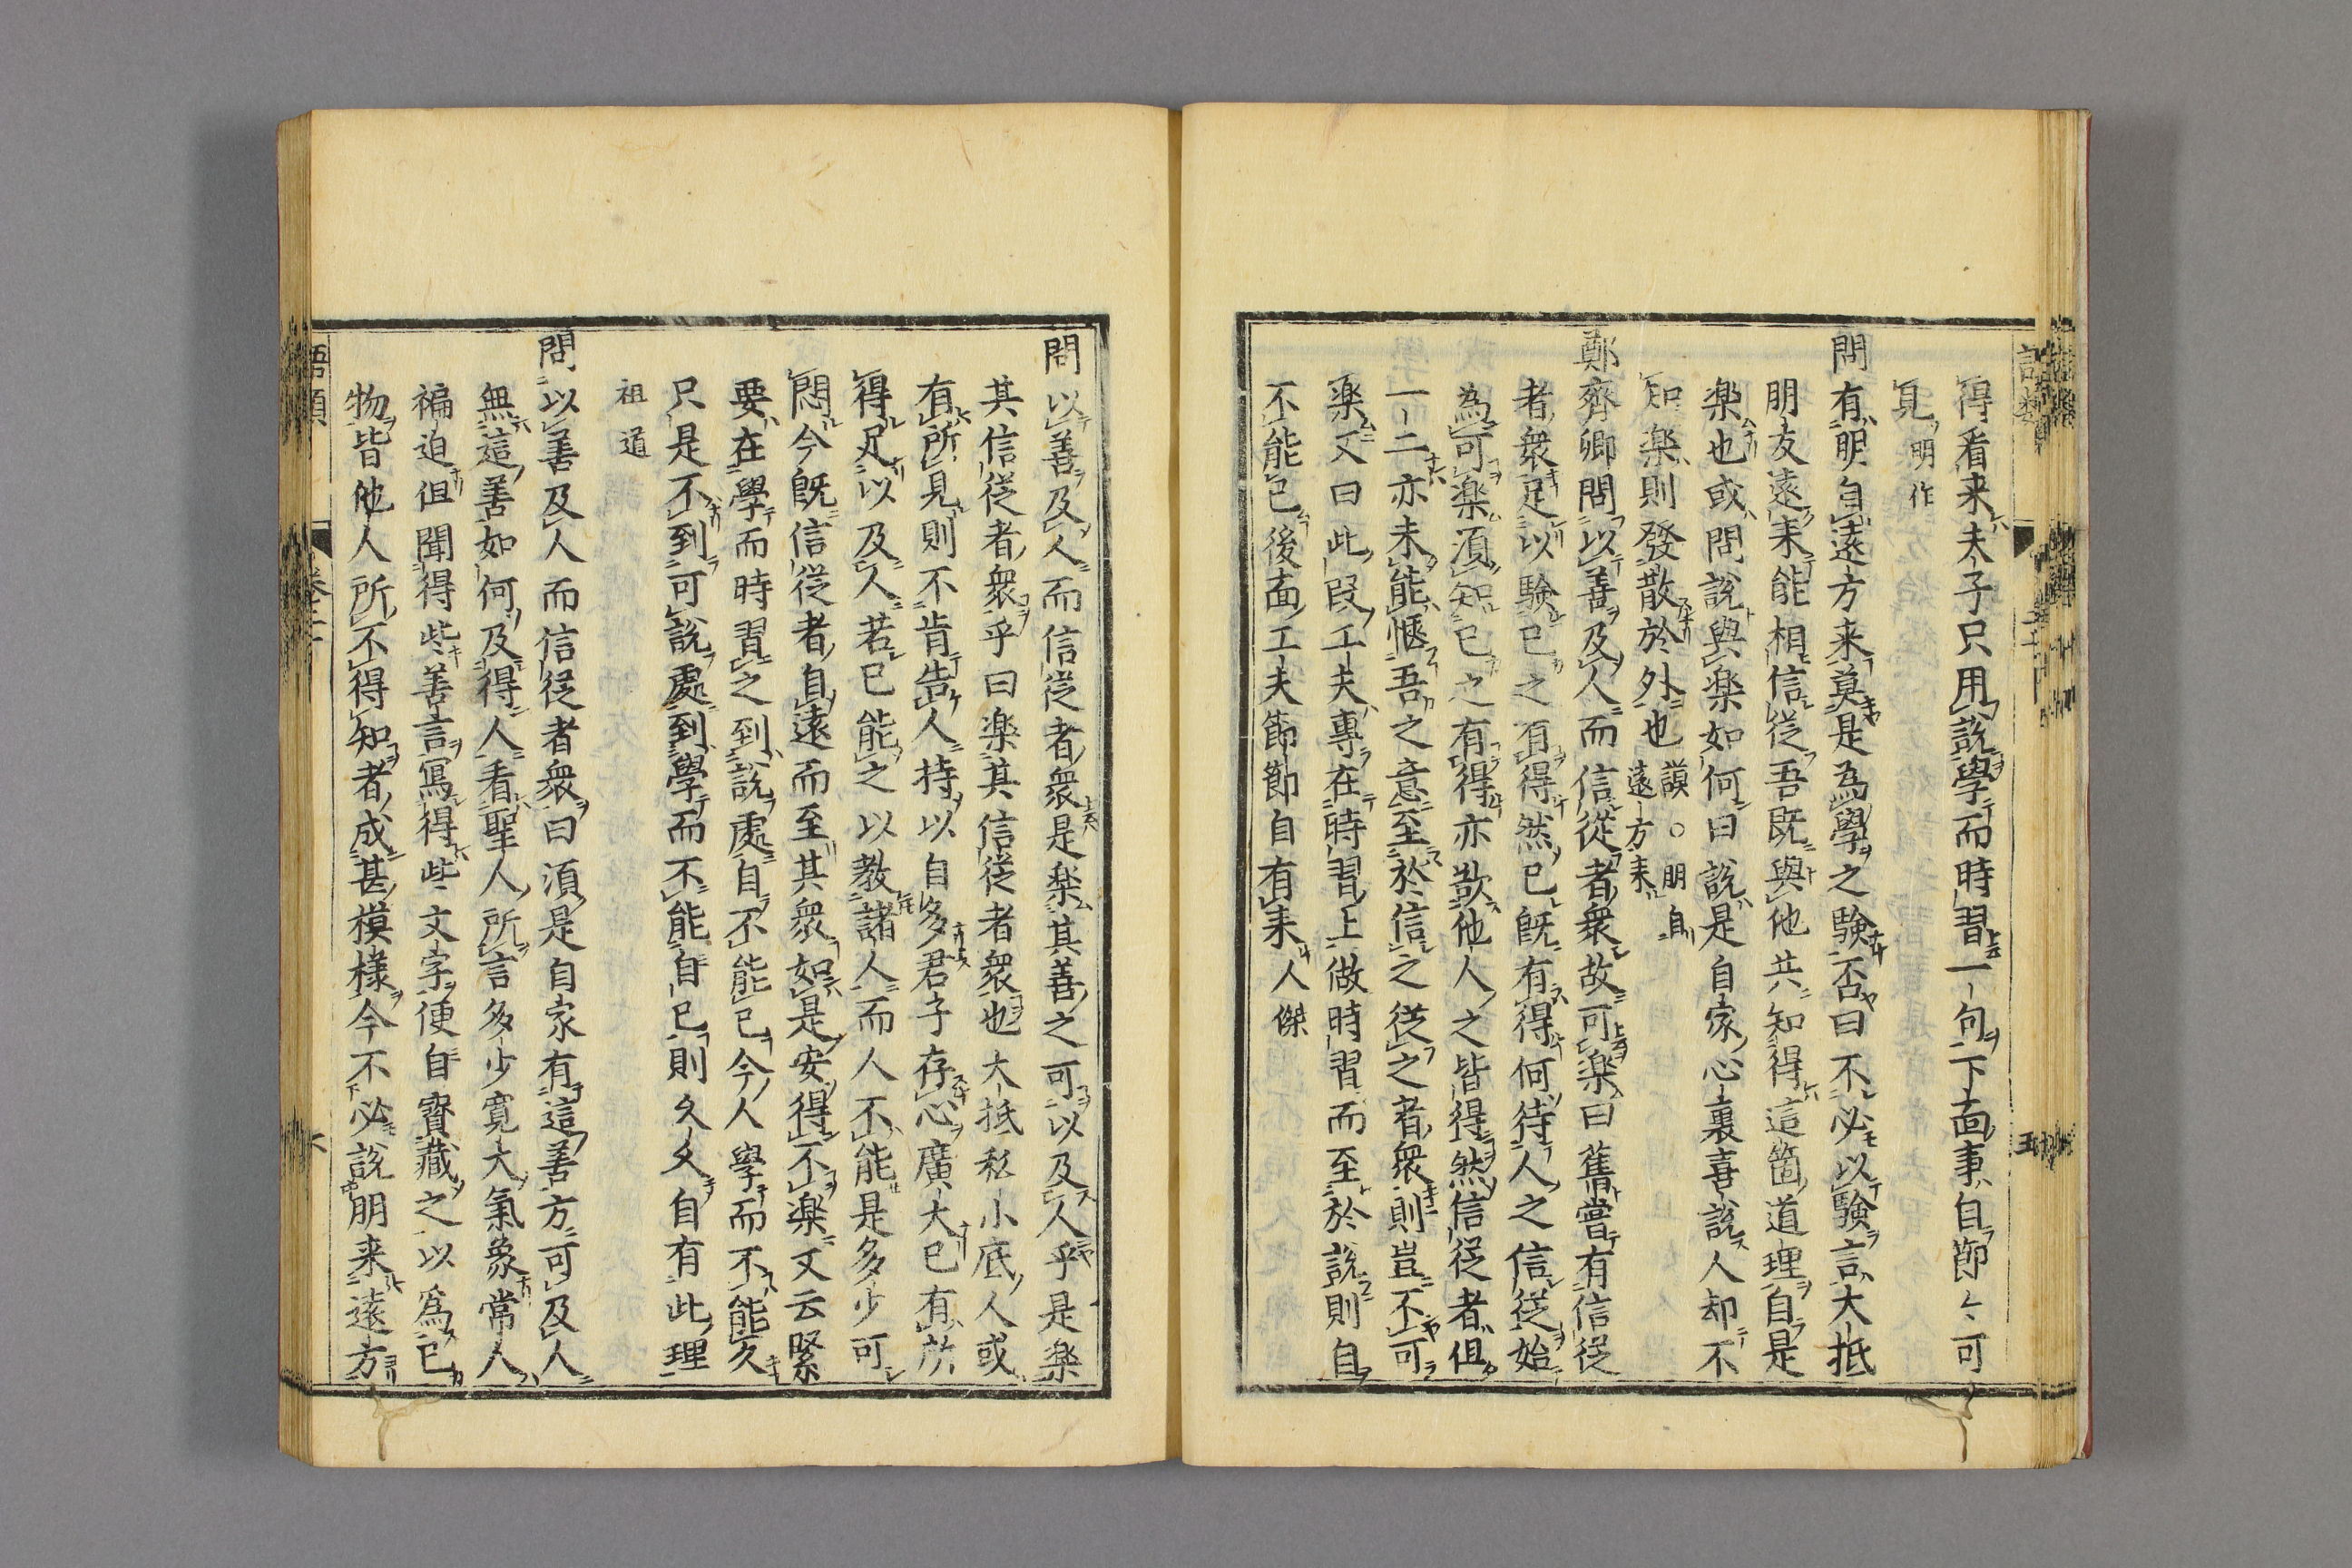 得看来夫子只用說學而時習一句下面事自節々可
見明作
問有朋自遠方来莫是為學之験否曰不必以験言大抵
朋友遠来能相信従吾既與他共知得這箇道理自是
楽也或問說與楽如何曰說是自家心裏喜說人却不
知楽則發散於外也謨○朋自遠方来
鄭齊卿問以善及人而信從者衆故可楽曰舊嘗有信従
者衆足以験己之有得然己既有得何待人之信従始
為可楽須知己之有得亦欲他人之皆得然信従者但
一二亦未能愜吾之意至於信之従之者衆則豈不可
楽又曰此段工夫專在時習上做時習而至於說則自
不能已後面工夫節節自有来人傑
問以善及人而信従者衆是楽其善之可以及人乎是楽
其信従者衆乎曰楽其信従者衆也大抵私小底人或
有所見則不肯告人持以自多君子存心廣大己有所
得足以及人若己能之以教諸人而人不能是多少可
悶今既信従者自遠而至其衆如是安得不楽又云緊
要在學而時習之到說處自不能已今人學而不能久
只是不到可說處到學而不能自已則久久自有此理
祖道
問以善及人而信従者衆曰須是自家有這善方可及人
無這善如何及得人看聖人所言多少寛大氣象常人
褊迫但聞得些善言寫得些文字便自寳藏之以為己
物皆他人所不得知者成甚模様今不必說朋来遠方
語類
卷二十
六